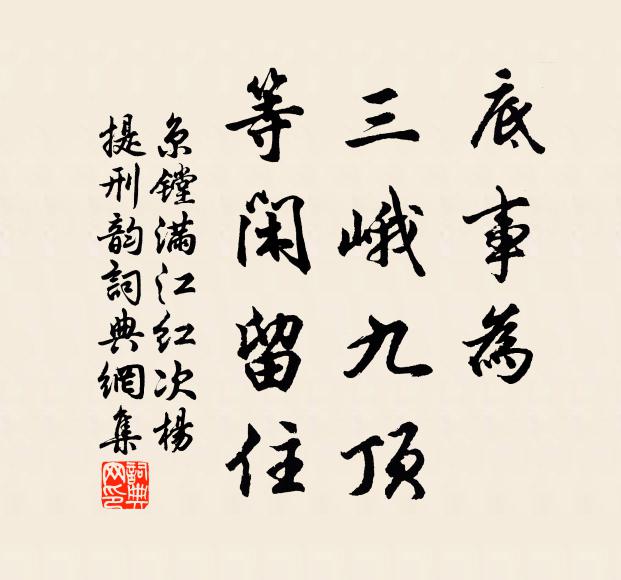 底事為
三峨九頂
等閑留住
京鏜滿江紅次楊
提刑韵詞典網集
詞典网印